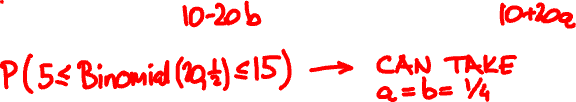 10-20b 10+20a
P(5≤ Binomial(20,½)≤15) → CAN TAKE
a=b=¼